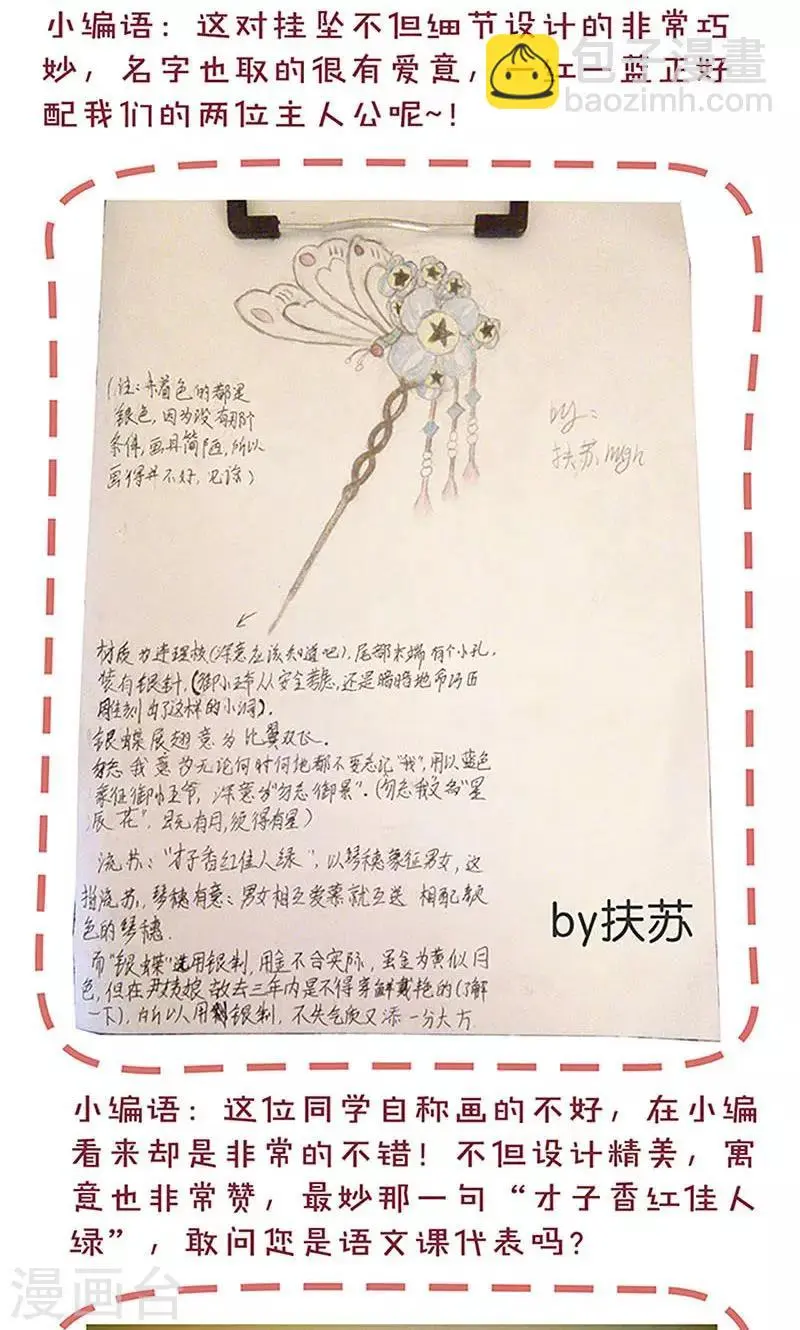 小编语：这对挂坠不但细节设计的非常巧
妙，名字也取的很有爱意，红一蓝正好
配我们的两位主人公呢~！
包子漫畫
baozimh.com
（注：未着色的都是
银色，因为没有那个
条件，画具简陋，所以
画得并不好，见谅）
by：
扶苏mgh
材质为连理枝（深意应该知道吧），尾部末端有个小孔，
装有银针，（御小王爷从安全考虑，还是暗暗地
用雕刻出了这样的小洞）．
银蝶展翅意为比翼双飞．
勿忘我意为无论何时何地都不要忘记“我”，用以蓝色
象征御小王爷，深意为“勿忘御景”．（勿忘我又名“星
辰花”．既无有月，须得有星）
流苏：“才子香红佳人绿”，以琴穗象征男女，这
指流苏，琴穗有意：男女相互爱慕就互送 相配颜
色的琴穗．
而“银蝶”选用银制，用金不合实际，虽金为黄似月
色，但在尹姑娘故去三年内是不得穿鲜戴艳的（了解
一下），所以用银制，不失气质又添一分大方．
by扶苏
小编语：这位同学自称画的不好，在小编
看来却是非常的不错！不但设计精美，寓
意也非常赞，最妙那一句“才子香红佳人
绿”，敢问您是语文课代表吗？
漫画台